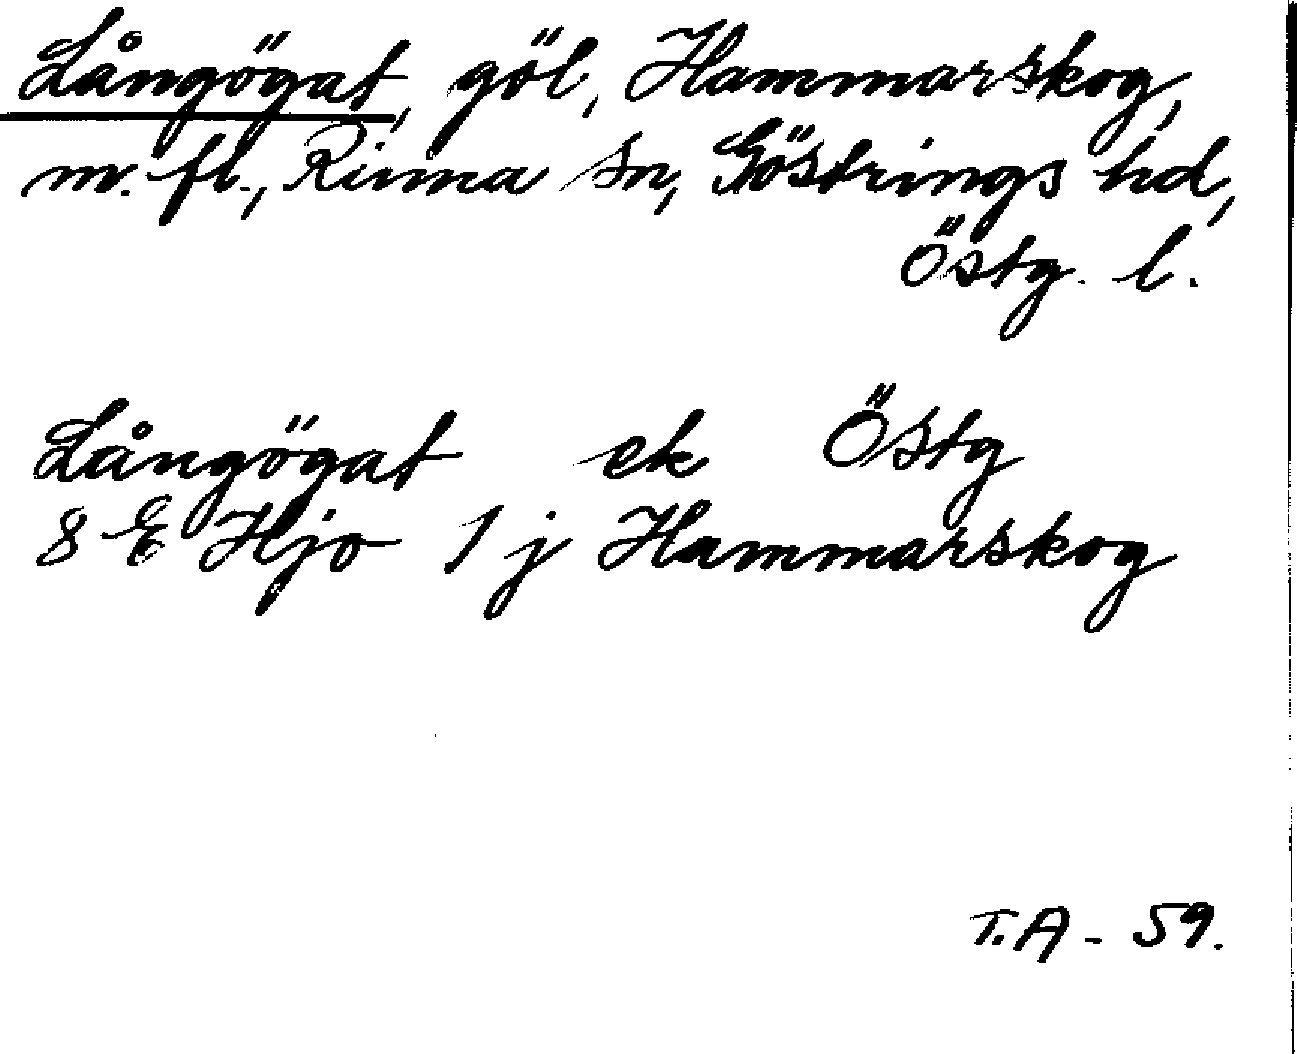 Långögat, göl, Hammarskog,
m. fl., Rinna sn, Göstrings hd,
Östg. l.
Långögat ek Östg
8 E Hjo 1 j Hammarskog
T.A - 59.